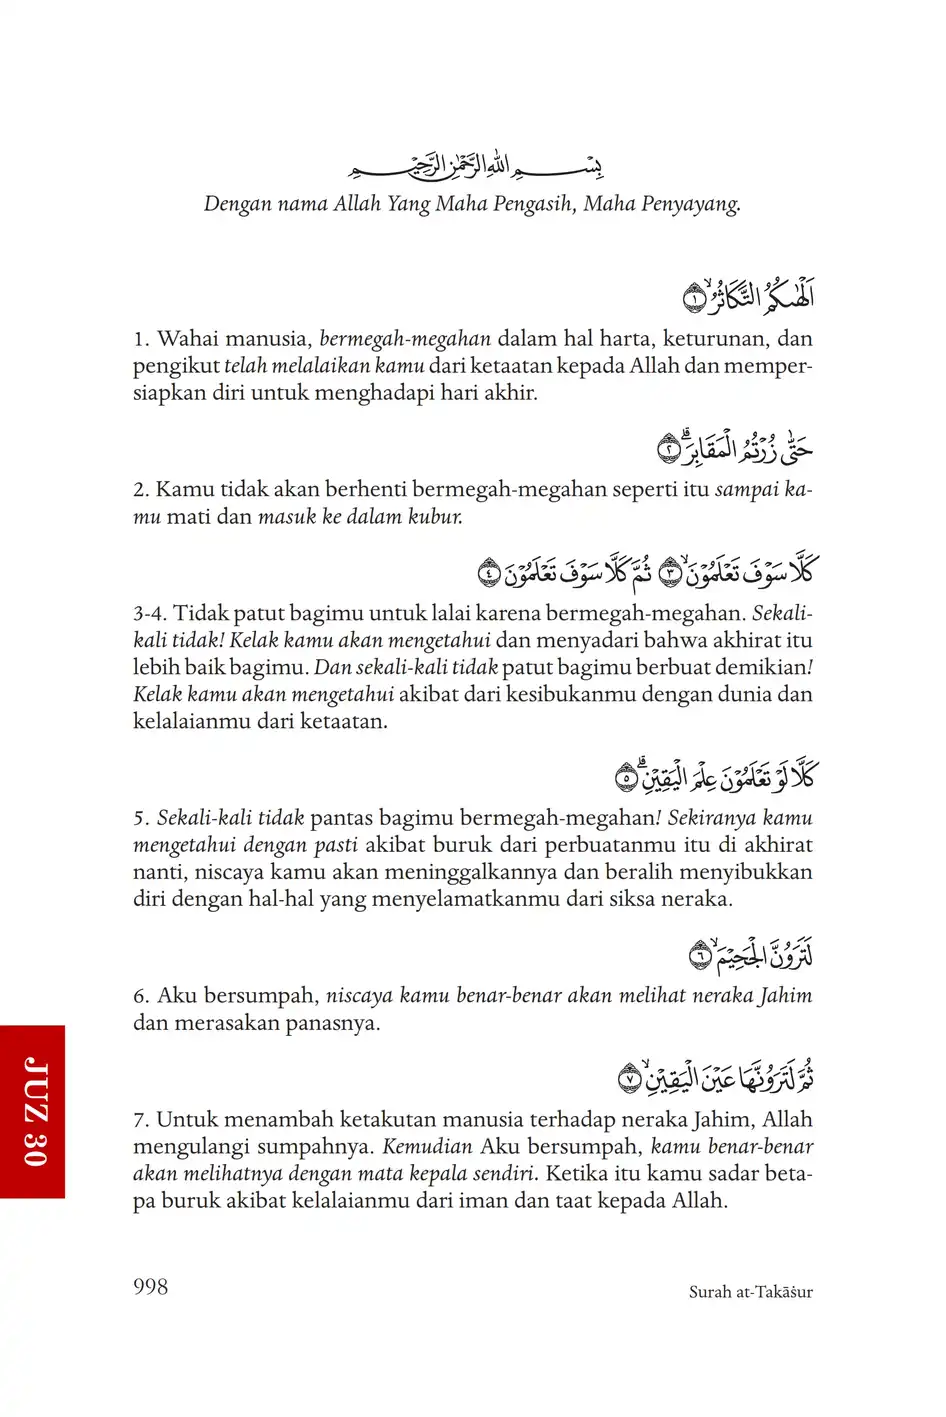 بِسْمِ اللّٰهِ الرَّحْمٰنِ الرَّحِيْمِ
Dengan nama Allah Yang Maha Pengasih, Maha Penyayang.
اَلْهٰىكُمُ التَّكَاثُرُۙ ١
1. Wahai manusia, bermegah-megahan dalam hal harta, keturunan, dan
pengikut telah melalaikan kamu dari ketaatan kepada Allah dan memper-
siapkan diri untuk menghadapi hari akhir.
حَتّٰى زُرْتُمُ الْمَقَابِرَۗ ٢
2. Kamu tidak akan berhenti bermegah-megahan seperti itu sampai ka-
mu mati dan masuk ke dalam kubur.
كَلَّا سَوْفَ تَعْلَمُوْنَۙ ٣ ثُمَّ كَلَّا سَوْفَ تَعْلَمُوْنَ ٤
3-4. Tidak patut bagimu untuk lalai karena bermegah-megahan. Sekali-
kali tidak! Kelak kamu akan mengetahui dan menyadari bahwa akhirat itu
lebih baik bagimu. Dan sekali-kali tidak patut bagimu berbuat demikian!
Kelak kamu akan mengetahui akibat dari kesibukanmu dengan dunia dan
kelalaianmu dari ketaatan.
كَلَّا لَوْ تَعْلَمُوْنَ عِلْمَ الْيَقِيْنِۗ ٥
5. Sekali-kali tidak pantas bagimu bermegah-megahan! Sekiranya kamu
mengetahui dengan pasti akibat buruk dari perbuatanmu itu di akhirat
nanti, niscaya kamu akan meninggalkannya dan beralih menyibukkan
diri dengan hal-hal yang menyelamatkanmu dari siksa neraka.
لَتَرَوُنَّ الْجَحِيْمَۙ ٦
6. Aku bersumpah, niscaya kamu benar-benar akan melihat neraka Jahim
dan merasakan panasnya.
ثُمَّ لَتَرَوُنَّهَا عَيْنَ الْيَقِيْنِۙ ٧
7. Untuk menambah ketakutan manusia terhadap neraka Jahim, Allah
mengulangi sumpahnya. Kemudian Aku bersumpah, kamu benar-benar
akan melihatnya dengan mata kepala sendiri. Ketika itu kamu sadar beta-
pa buruk akibat kelalaianmu dari iman dan taat kepada Allah.
JUZ 30
998
Surah at-Takāṡur